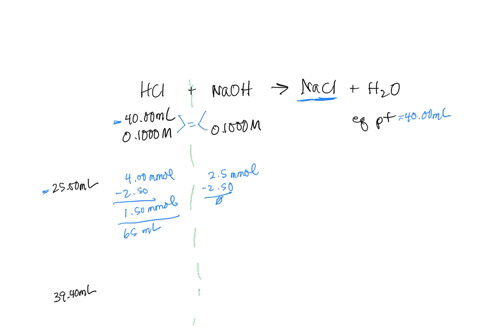 HCl + NaOH → NaCl + H₂O
40.00mL
0.1000M >=< 0.1000M
eq pt =40.00mL
25.00mL 4.00mmol 2.5mmol
-2.50 -2.50
1.50mmol 0
65mL
39.40mL